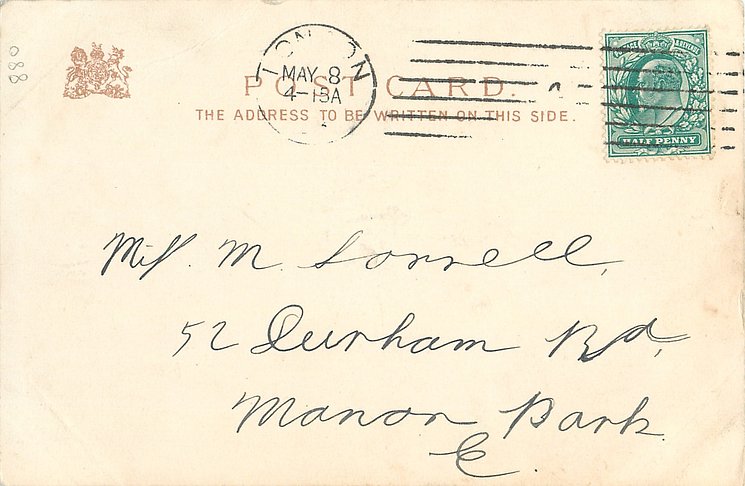 088
LONDON
MAY 8
4-15A
POST CARD.
THE ADDRESS TO BE WRITTEN ON THIS SIDE.
HALF PENNY
Miss. M. Sorrell,
52 Durham Rd,
Manor Park.
E.